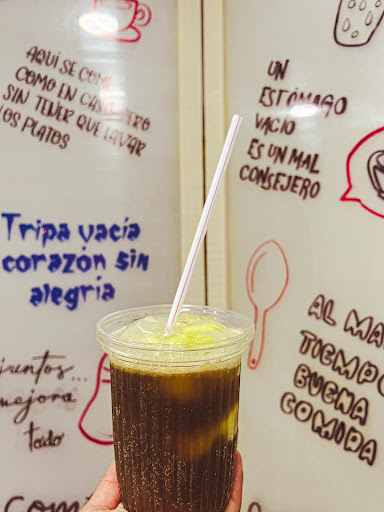 AQUÍ SE COME
COMO EN CASA PERO
SIN TENER QUE LAVAR
LOS PLATOS
UN
ESTÓMAGO
VACIO
ES UN MAL
CONSEJERO
Tripa vacía
corazón sin
alegría
AL MAL
TIEMPO
BUENA
COMIDA
juntos...
mejora
todo